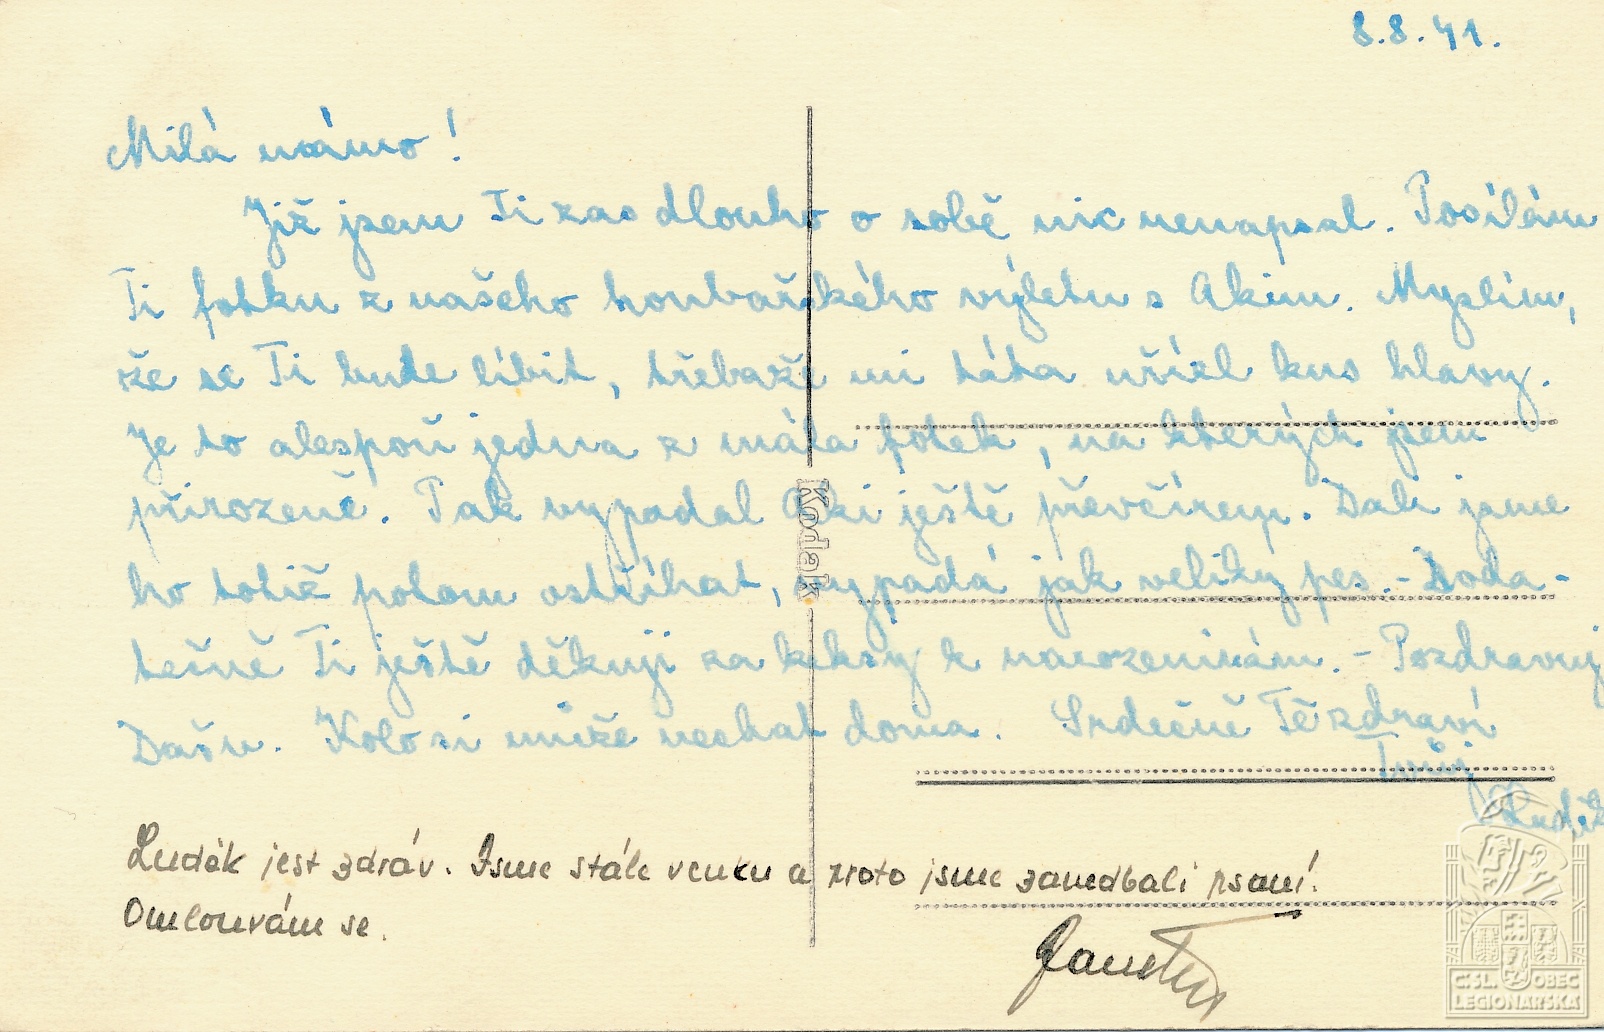 8.8.41.
Milá mámo!
Již jsem Ti zas dlouho o sobě nic nenapsal. Posílám
Ti fotku z našeho houbařského výletu s Akim. Myslím,
že se Ti bude líbit, třebaže mi táta uřízl kus hlavy.
Je to alespoň jedna z mála fotek, na kterých jsem
přirozeně. Tak vypadal Aki ještě předvčírem. Dali jsme
ho totiž potom ostříhat, vypadá jak veliký pes. - Doda-
tečně Ti ještě děkuji za keksy k narozeninám. - Pozdravuj
Dašu. Kolo si může nechat doma. Srdečně Tě zdraví
Tvůj
Luděk
Luděk jest zdráv. Jsme stále venku a proto jsme zanedbali psaní.
Omlouvám se.
Kodak
Č.SL. OBEC
LEGIONÁŘSKÁ